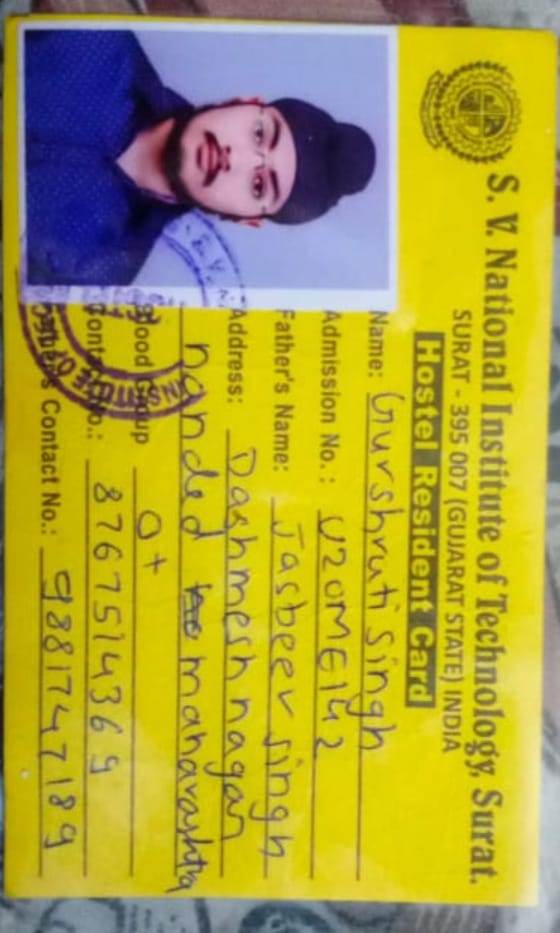 S. V. National Institute of Technology, Surat.
SURAT - 395 007 (GUJARAT STATE) INDIA
Hostel Resident Card
Name: Gurshruti Singh
Admission No. : U20ME142
Father's Name: Jasbeer singh
Address: Dashmesh nagar
nanded maharashtra
Blood Group O+
Contact No.: 8767514369
Contact No.: 9881747189
INSTITUTE OF